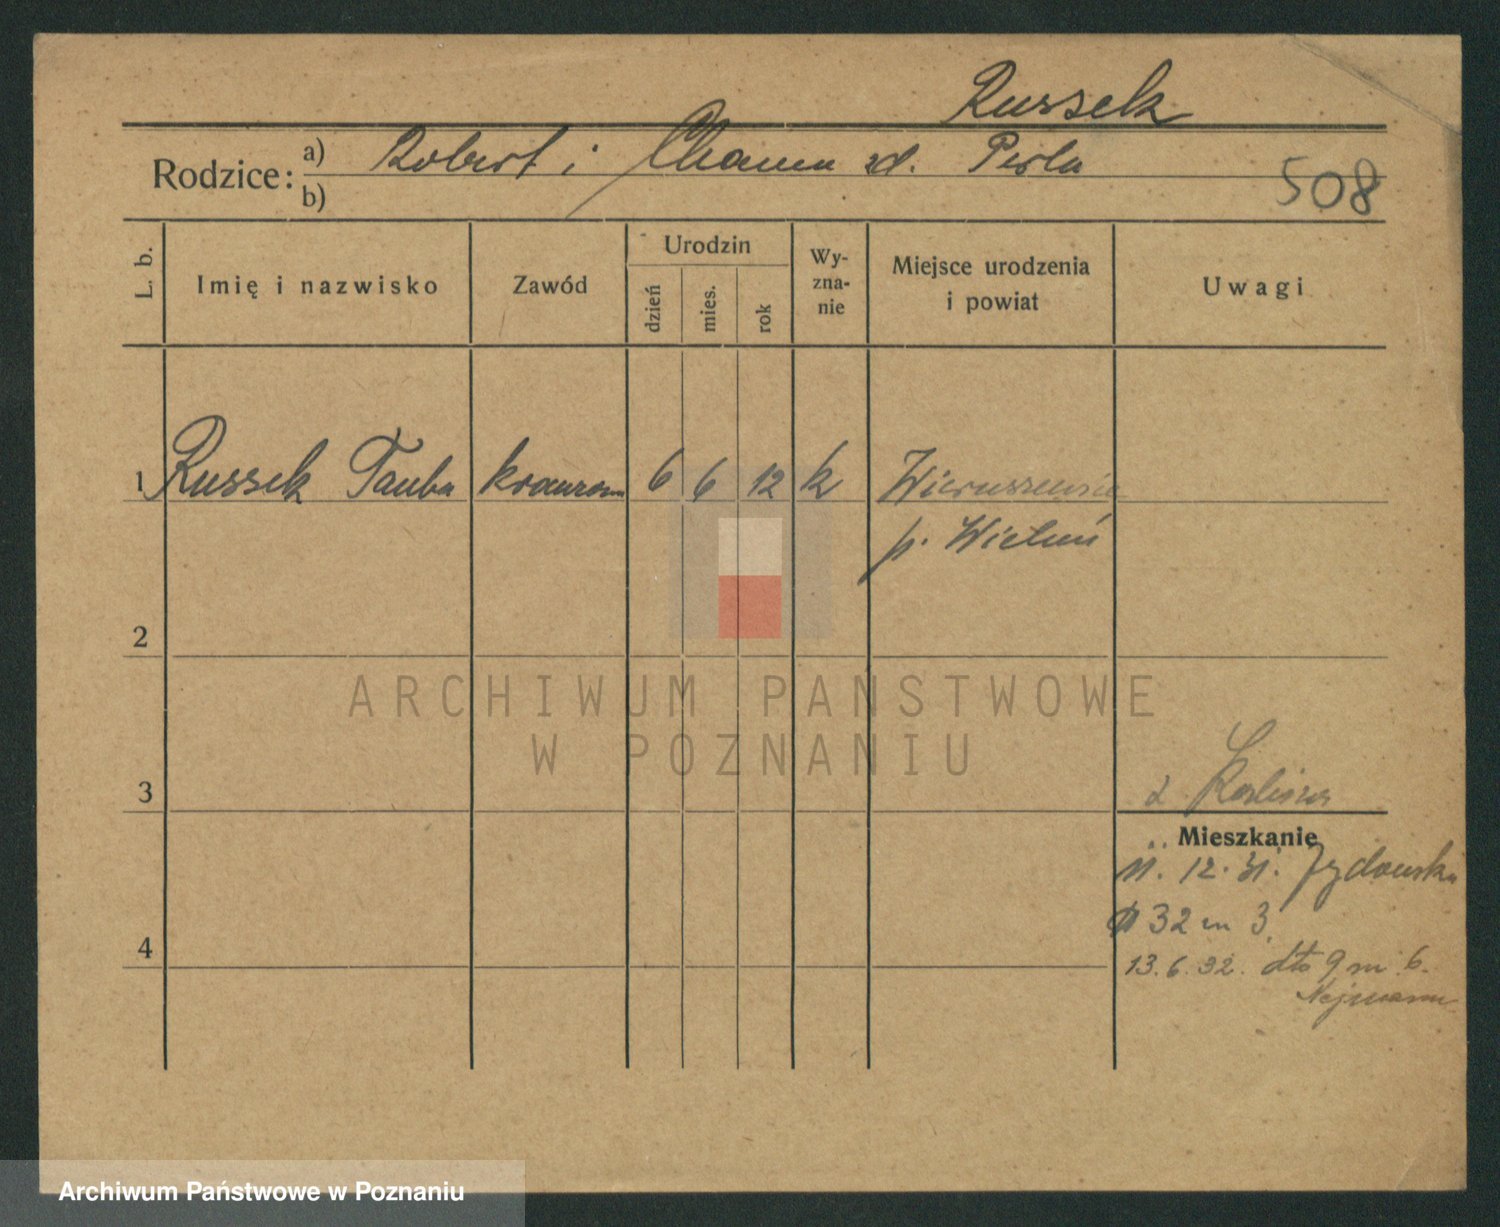 Russek
Rodzice: a) Robert i Chana zd. Perla
b)
508
L. b.
Imię i nazwisko
Zawód
Urodzin
dzień
mies.
rok
Wy-
zna-
nie
Miejsce urodzenia
i powiat
Uwagi
1 Russek Tauba krawcowa 6 6 12
p. Wieluń
2
ARCHIWUM PAŃSTWOWE
W POZNANIU
3
z Kalisza
Mieszkanie
11. 12. 31. Żydowska
32 m 3.
4
13. 6. 32. dto 9 m 6.
Archiwum Państwowe w Poznaniu